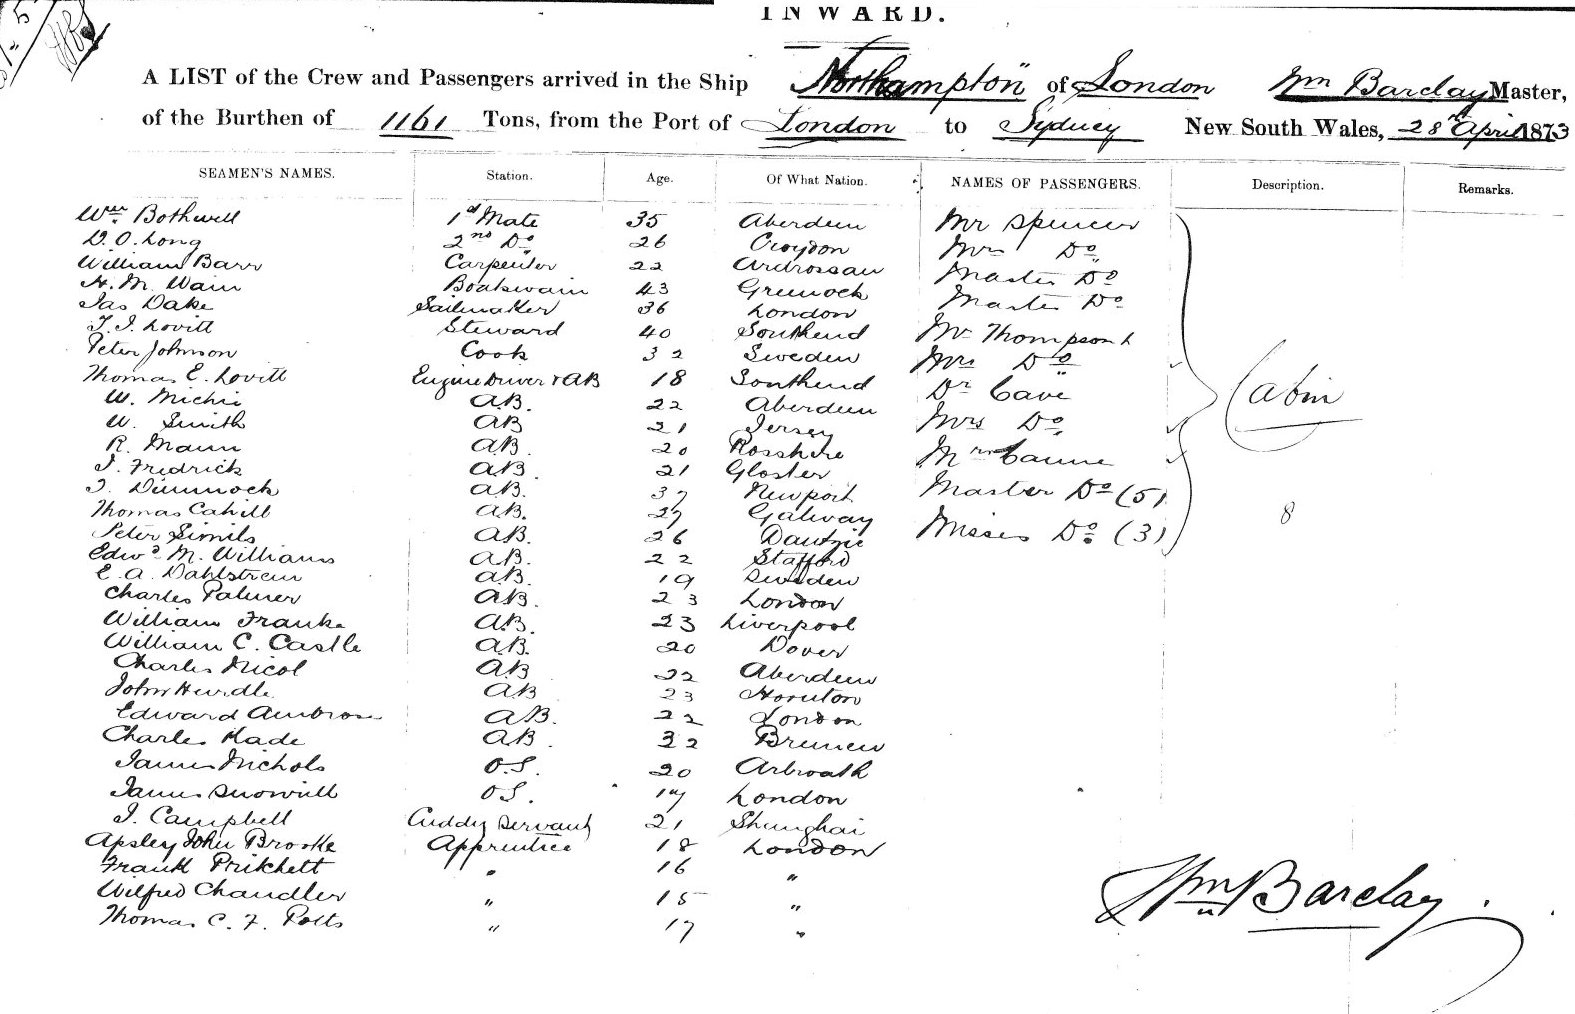 INWARD.
A LIST of the Crew and Passengers arrived in the Ship Northampton of London Wm Barclay Master,
of the Burthen of 1161 Tons, from the Port of London to Sydney New South Wales, 28th April 1873
SEAMEN'S NAMES. Station. Age. Of What Nation. NAMES OF PASSENGERS. Description. Remarks.
Wm. Bothwell 1st Mate 35 Aberdeen Mr Spencer
D. O. Long 2nd Do 26 Croydon Mrs Do
William Barr Carpenter 22 Ardrossan Master Do
H. M. Wain Boatswain 43 Greenock Master Do
Jas Dake Sailmaker 36 London
T. J. Lovitt Steward 40 Southend Mr Thompson
Peter Johnson Cook 32 Sweden Mrs Do
Thomas E. Lovitt Engine Driver & AB 18 Southend Dr Cave Cabin
W. Michie A.B. 22 Aberdeen
W. Smith AB 21 Jersey Mrs Do
R. Mann A.B. 20 Rosshire Mrs
J. Fredrick A.B. 21 Gloster
J. Dimmock A.B. 37 Newport Master Do (5)
Thomas Cahill A.B. 27 Galway 8
Peter Simils A.B. 26 Dantzic Misses Do (3)
Edwd M. Williams A.B. 22 Stafford
E. A. Dahlstrem A.B. 19 Sweden
Charles Palmer A.B. 23 London
William Franks A.B. 23 Liverpool
William C. Castle A.B. 20 Dover
Charles Nicol AB 22 Aberdeen
John Hurdle A.B 23
Edward Ambrose A.B. 22 London
Charles Kade A.B. 32 Bremen
James Nichols O.S. 20 Arbroath
James Snowill O.S. 17 London
J. Campbell Cuddy Servant 21 Shanghai
Apsley John Brooke Apprentice 18 London
Frank Prikhett " 16 "
Wilfred Chandler " 15 "
Thomas C. F. Potts " 17 "
Wm Barclay.